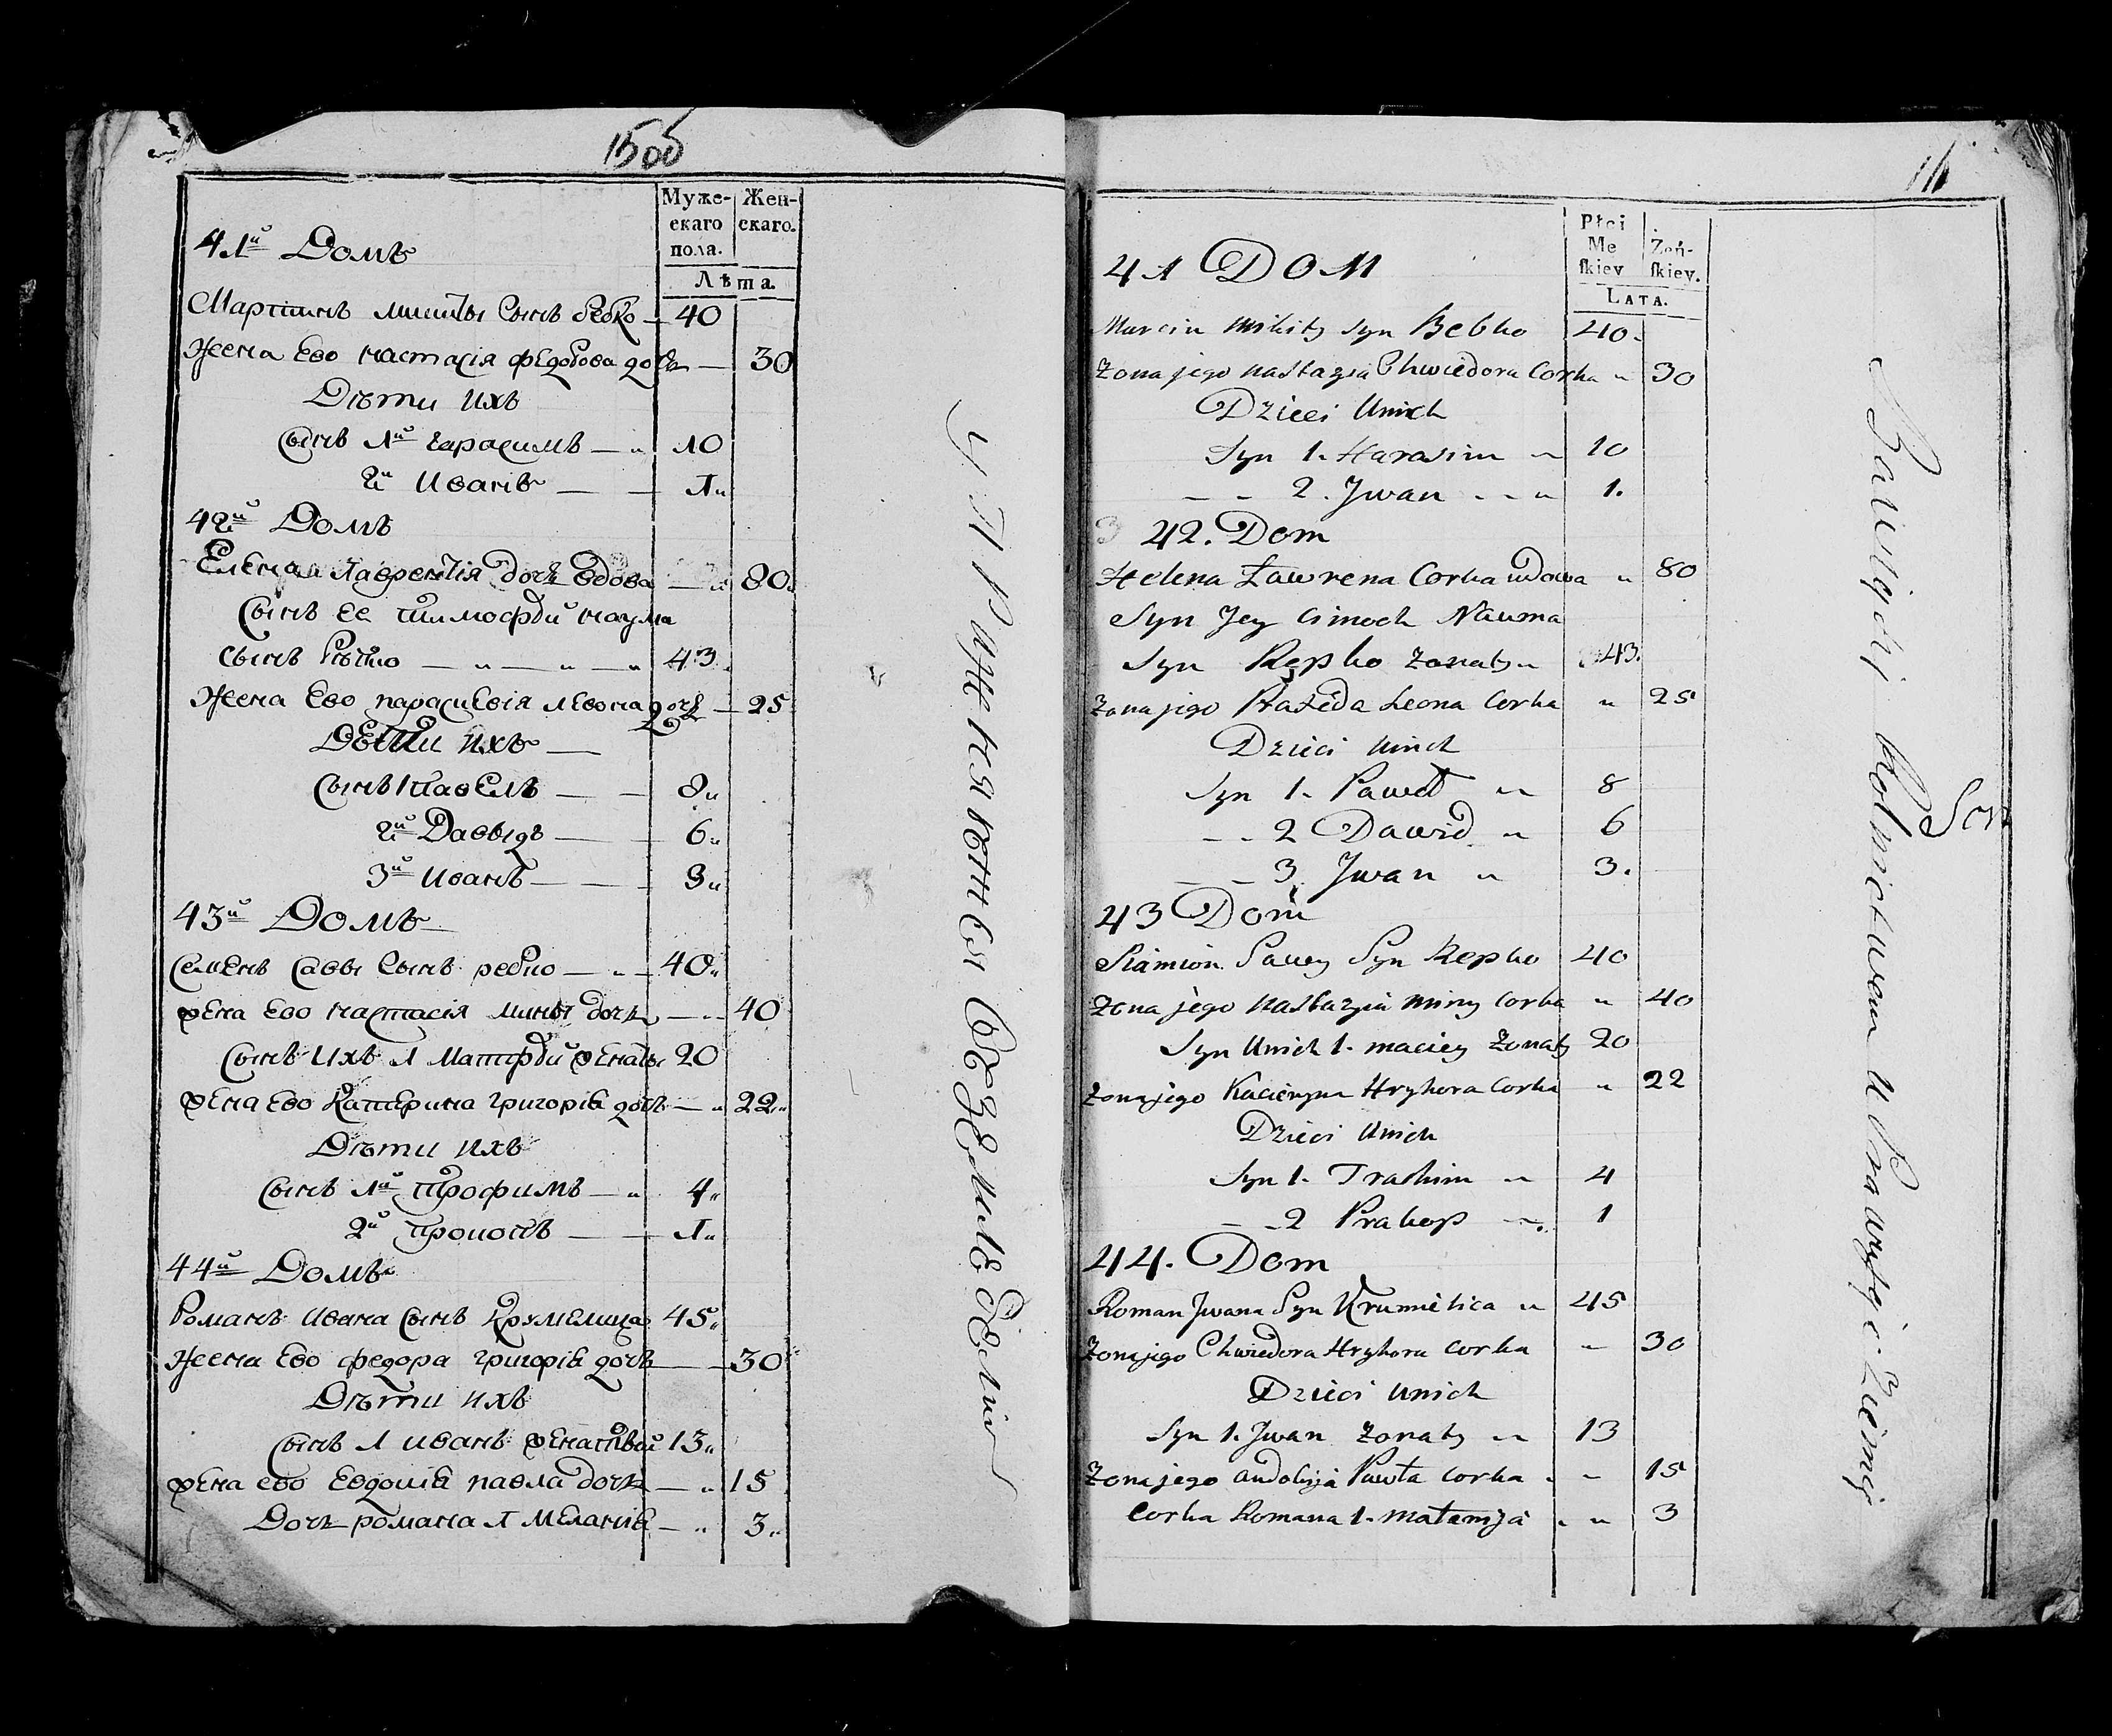 15об
Муже-
скаго
пола.
Жен-
скаго.
Лѣта.
41й Домъ
Мартинъ микиты Сынъ бебко — 40
Жена Ево настасія федорова дочь — 30
Дѣти ихъ
Сынъ 1й гарасимъ — „ 10
2й Иванъ — — 1„
42й Домъ
Елена Лаврентія дочь вдова — „ 80„
Сынъ ее тимофѣй наума
Сынъ — „ — „ — „ 43
Жена Ево парасцевія левона дочь — 25
Дѣти ихъ —
Сынъ 1 Павелъ — — 8„
2й Давыдъ — — 6„
3й Иванъ — — 3„
43й Домъ
Семенъ Саввы Сынъ репко — „ — 40„
жена Ево настасія мины дочь — „ 40
Сынъ ихъ 1 Матфѣй женаты 20
жена Ево Катерина григорія дочь — „ 22„
Дѣти ихъ
Сынъ 1й трофимъ — „ 4„
2й прокопъ — — 1„
44й Домъ
Романъ ивана Сынъ Крумелица 45„
Жена Ево федора григорія дочь — 30
Дѣти ихъ
Сынъ 1 иванъ женатый 13„
жена ево Евдокія павла дочь — „ 15
Дочь романа 1 Меланія — „ 3„
16
Płci
Me
ſkiey
Zeń-
ſkiey.
LATA.
41 DOM
Marcin Mikity Syn Bebko 40.
Zona jego Nastazia Chwiedora Corka „ 30
Dzieci Unich
Syn 1. Harasim „ 10
– – 2. Jwan – – „ 1.
42. Dom
Helena Ławrena Corka wdowa „ 80
Syn Jey Cimoch Nauma
Syn Repko Zonaty „ 43.
Zona jego Leona Corka „ 25
Dzieci Unich
Syn 1. Paweł „ 8
– – 2 Dawid „ 6
– – 3. Jwan „ 3.
43 Dom
Siamion Sawy Syn Repko 40
Zona jego Nastazia Miny Corka „ 40
Syn Unich 1. Maciey Zonaty 20
Zona jego Kacieryna Hryhora Corka „ 22
Dzieci Unich
Syn 1. Trachim „ 4
– – 2 Prakop „ 1
44. Dom
Roman Jwana Syn Krumielica „ 45
Zona jego Chwiedora Hryhora Corka „ 30
Dzieci Unich
Syn 1. Jwan Zonaty „ 13
Zona jego Audokija Pawła Corka „ „ 15
Corka Romana 1. Małanija „ „ 3